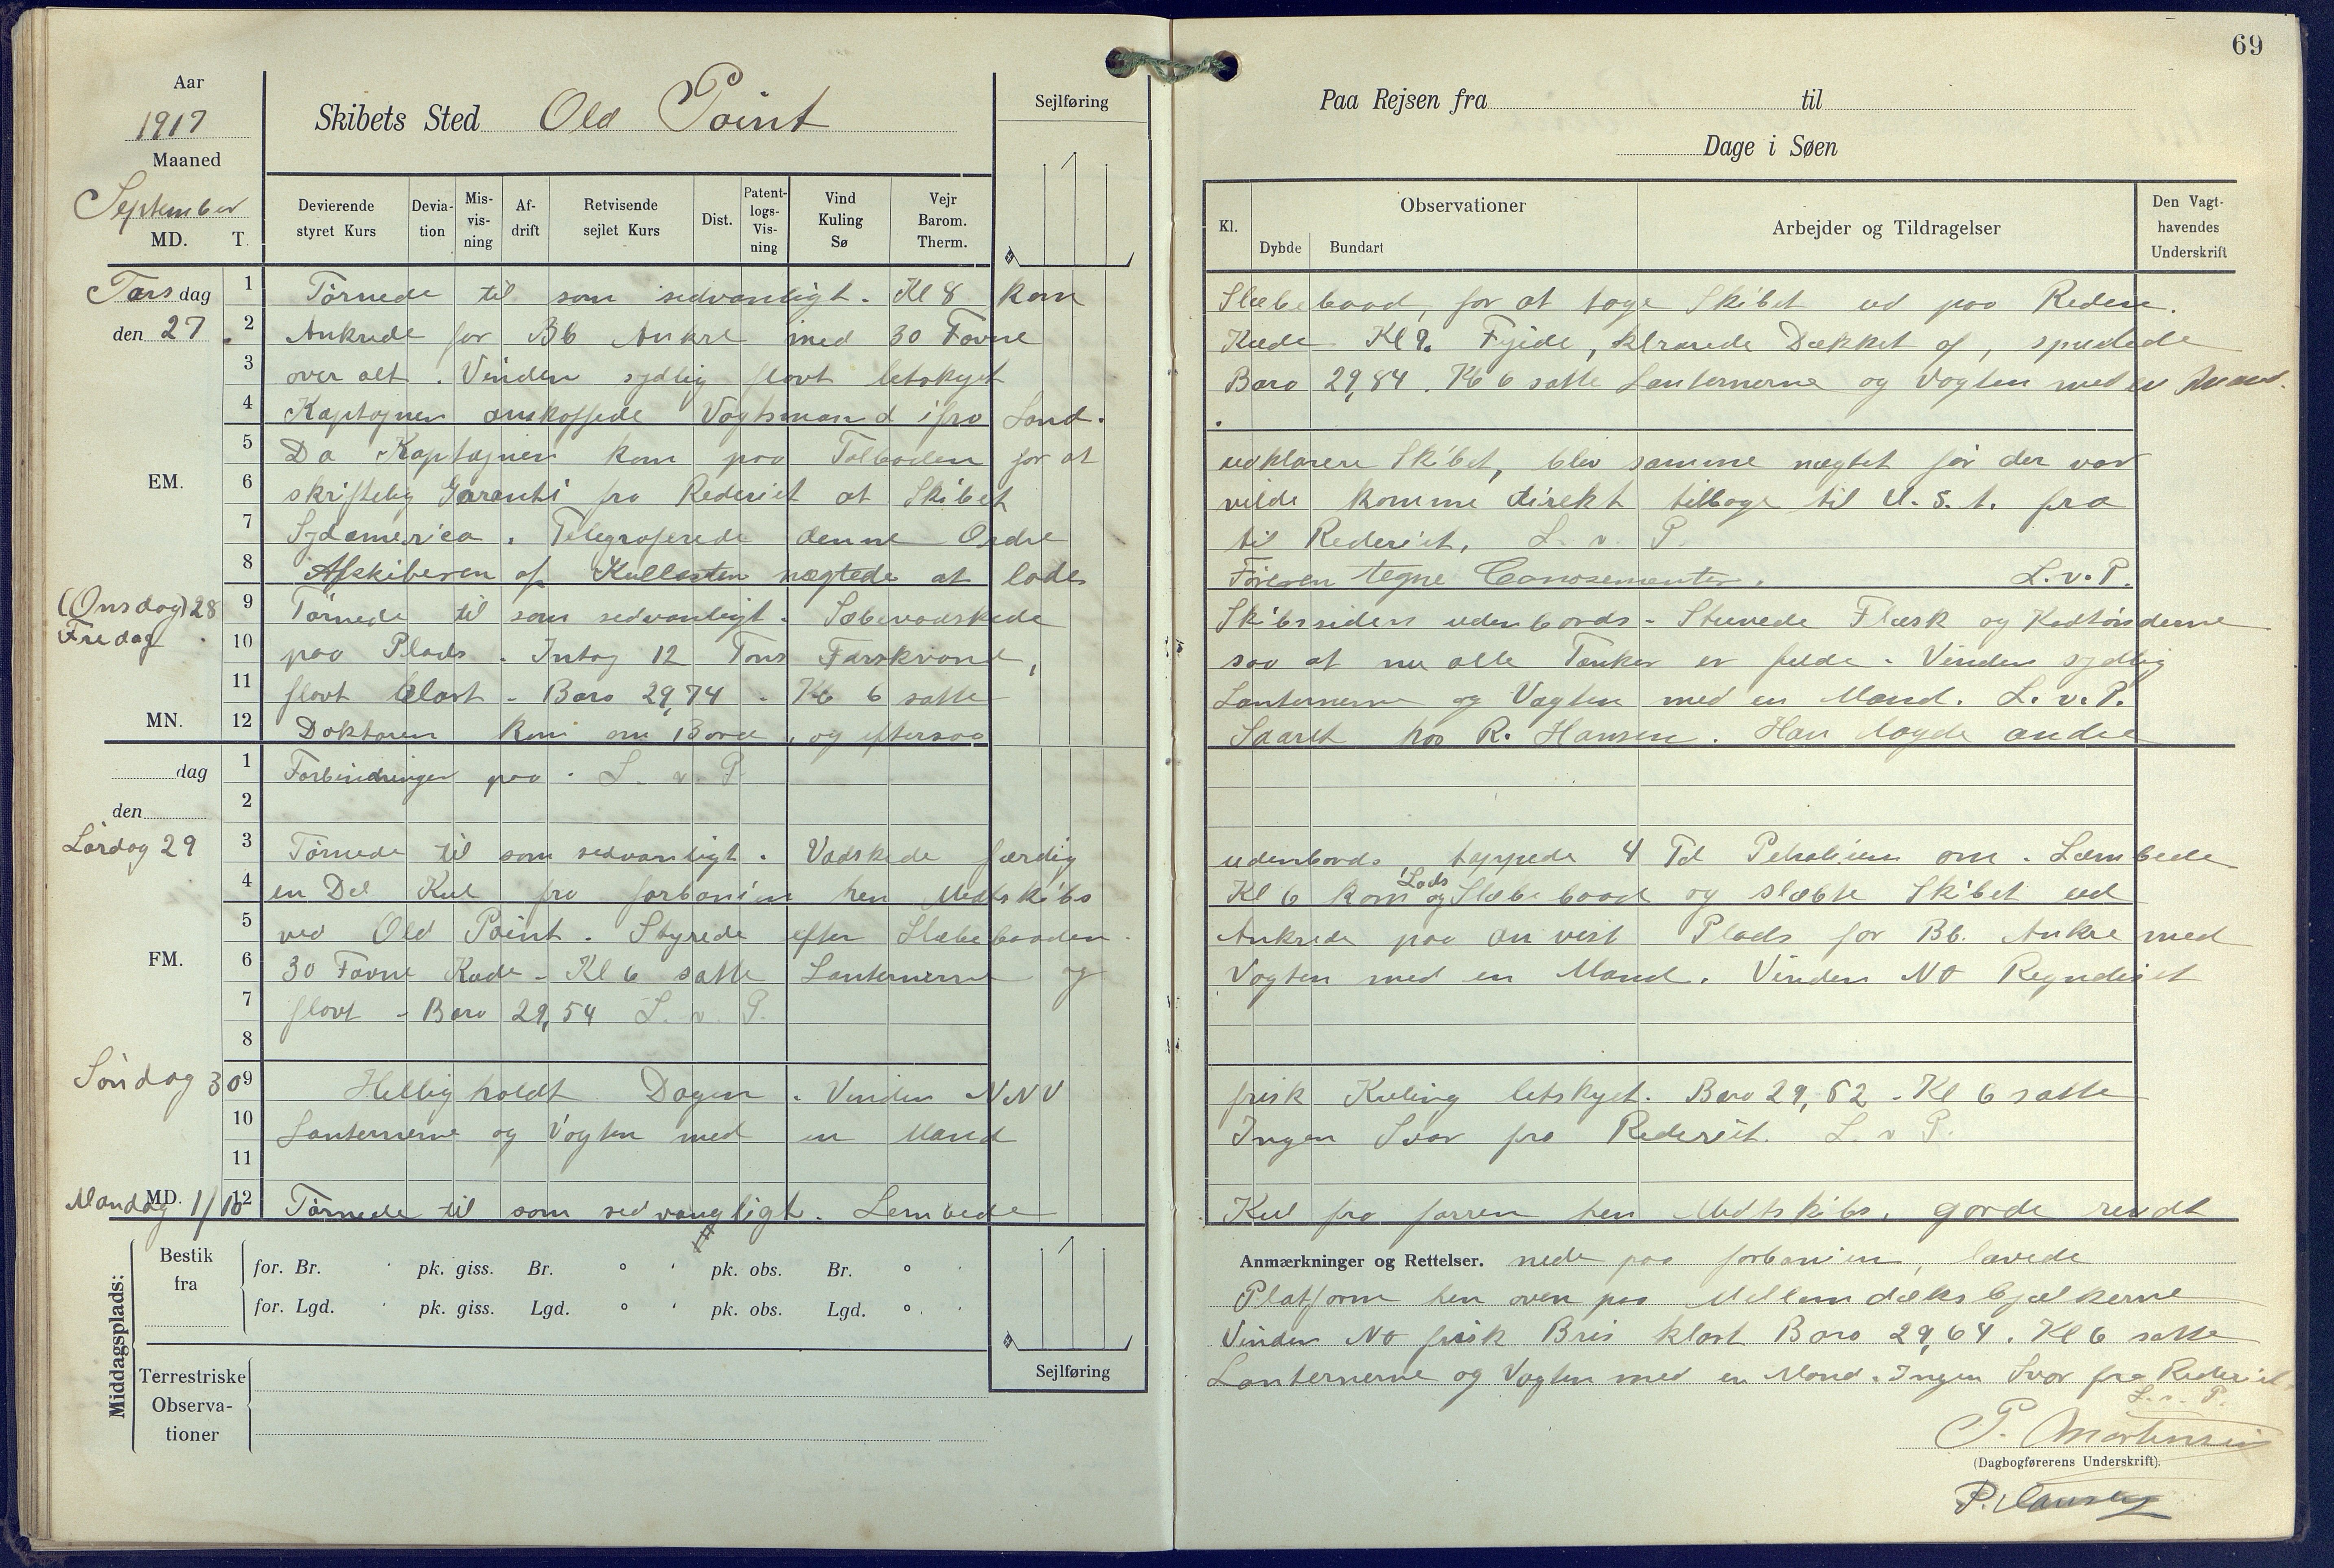 69
Aar
1917
Maaned
September
Skibets Sted Old Point
Sejlføring
Paa Rejsen fra til
Dage i Søen
MD. T.
Devierende styret Kurs
Devia-tion
Mis-vis-ning
Af-drift
Retvisende sejlet Kurs
Dist.
Patent-logs-Vis-ning
Vind Kuling Sø
Vejr Barom. Therm.
Kl.
Observationer
Dybde Bundart
Arbejder og Tildragelser
Den Vagt-havendes Underskrift
Torsdag 1 Törnede til som sedvanligt. Kl 8 kom Slæbebaad, for at tage Skibet ud paa Reden.
den 27. 2 Ankrede for BB Ankre med 30 Favne Kæde Kl 9. Fyide, klarede Dækket of, spulede
3 over alt. Vinden sydlig flovt letskyet Baro 29,84. Kl 6 satte Lanternerne og Vagten med en Mand.
4 Kaptajnen anskaffede Vagtsmand ifra Land.
5 Da Kaptajnen kom paa Tolboden for at udklarere Skibet, blev samme nægtet før der var
EM. 6 skriftelig Garanti fra Rederiet at Skibet vilde komme direkt tilbage til U.S.t. fra
7 Sydamerica. Telegraferede denne Ordre til Rederiet. L. v. P.
8 Afskiberen af Kullasten nægtede at lade Føreren tegne Conosementer. L.v.P.
(Onsdag) 28 Fredag 9 Törnede til som sedvanligt. Sæbevadskede Skibssiden udenbords - Stuvede Flæsk og Kødtønderne
10 paa Plads. Intog 12 Tons Farskvand, saa at nu alle Tanker er fulde. Vinden sydlig
11 flovt klart - Baro 29,74 - Kl 6 satte Lanternerne og Vagten med en Mand. L.v.P.
MN. 12 Doktoren kom om Bord, og eftersaa Saaret hos R. Hansen. Han lagde andre
dag 1 Forbindringer paa. L. v. P.
den 2
Lördag 29 3 Törnede til som sedvanligt. Vadskede færdig udenbords, tappede 4 Td Petroleum om. Læmbede
4 en Del Kul fra forbanien hen Midtskibs Kl 6 kom Lods og Slæbebaad og slæbte Skibet ud
5 ved Old Point. Styrede efter Slæbebaaden. Ankrede paa anvist Plads for BB. Ankre med
FM. 6 30 Favne Kæde - Kl 6 satte Lanternerne og Vagten med en Mand. Vinden NO Regndiset
7 flovt - Baro 29,54 L. v. P.
8
Söndag 30 9 Helligholdt Dagen. Vinden NNV frisk Kuling letskyet. Baro 29,62 - Kl 6 satte
10 Lanternerne og Vagten med en Mand Ingen Svar fra Rederiet. L. v P.
11
MD. Mandag 1/10 12 Törnede til som sedvangligt. Lembede Kul fra forren hen Midtskibs. gorde rendt
Middagsplads:
Bestik fra
for. Br. ' pk. giss. Br. ° ' pk. obs. Br. ° '
for. Lgd. ' pk. giss. Lgd. ° ' pk. obs. Lgd. ° '
Terrestriske Observa-tioner
Sejlføring
Anmærkninger og Rettelser. nede paa forbanien, lavede
Platform hen oven paa Mellemdæks bjælkerne
Vinden NO frisk Bris klart Baro 29,64. Kl 6 satte
Lanternerne og Vagten med en Mand. Ingen Svar fra Rederiet
L. v. P.
P. Mortensen
(Dagbogførerens Underskrift).